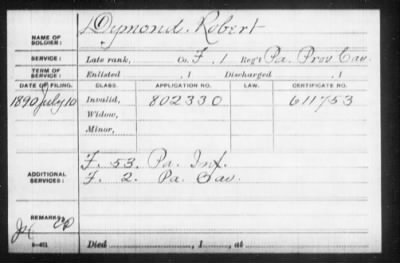 NAME OF SOLDIER: Dymond, Robert
SERVICE: Late rank, Co. F, 1 Reg't Pa. Prov Cav.
TERM OF SERVICE: Enlisted , 1 Discharged , 1
DATE OF FILING. CLASS. APPLICATION NO. LAW. CERTIFICATE NO.
1890 July 10 Invalid, 802330 611753
Widow,
Minor,
ADDITIONAL SERVICES: F. 53. Pa. Inf.
F. 2. Pa. Cav.
REMARKS:
Died , 1 , at